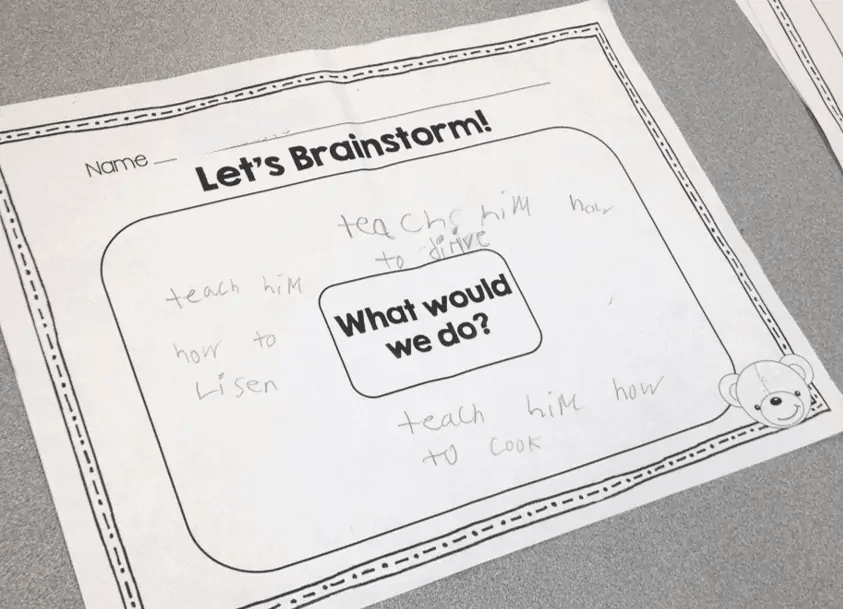 Name
Let's Brainstorm!
teach him how
to dirive
teach him
how to
Lisen
What would
we do?
teach him how
to cook